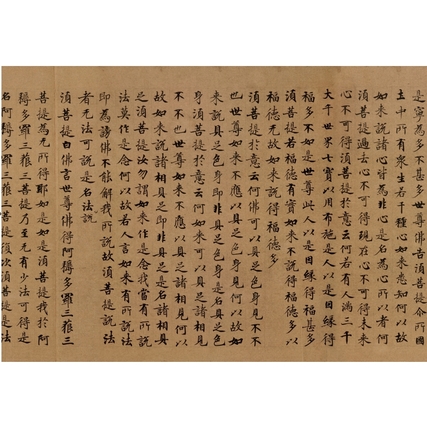 是寧為多不甚多世尊佛告須菩提尒所國
土中所有衆生若干種心如來悉知何以故
如來說諸心皆為非心是名為心所以者何
須菩提過去心不可得現在心不可得未來
心不可得須菩提於意云何若有人滿三千
大千世界七寶以用布施是人以是因緣得
福多不如是世尊此人以是因緣得福甚多
須菩提若福德有實如來不說得福德多以
福德无故如來說得福德多
須菩提於意云何佛可以具足色身見不不
也世尊如來不應以具足色身見何以故如
來說具足色身即非具足色身是名具足色
身須菩提於意云何如來可以具足諸相見
不不也世尊如來不應以具足諸相見何以
故如來說諸相具足即非具足是名諸相具
足須菩提汝勿謂如來作是念我當有所說
法莫作是念何以故若人言如來有所說法
即為謗佛不能解我所說故須菩提說法
者无法可說是名說法
須菩提白佛言世尊佛得阿耨多羅三藐三
菩提為无所得耶如是如是須菩提我於阿
耨多羅三藐三菩提乃至无有少法可得是
名阿耨多羅三藐三菩提復次須菩提是法